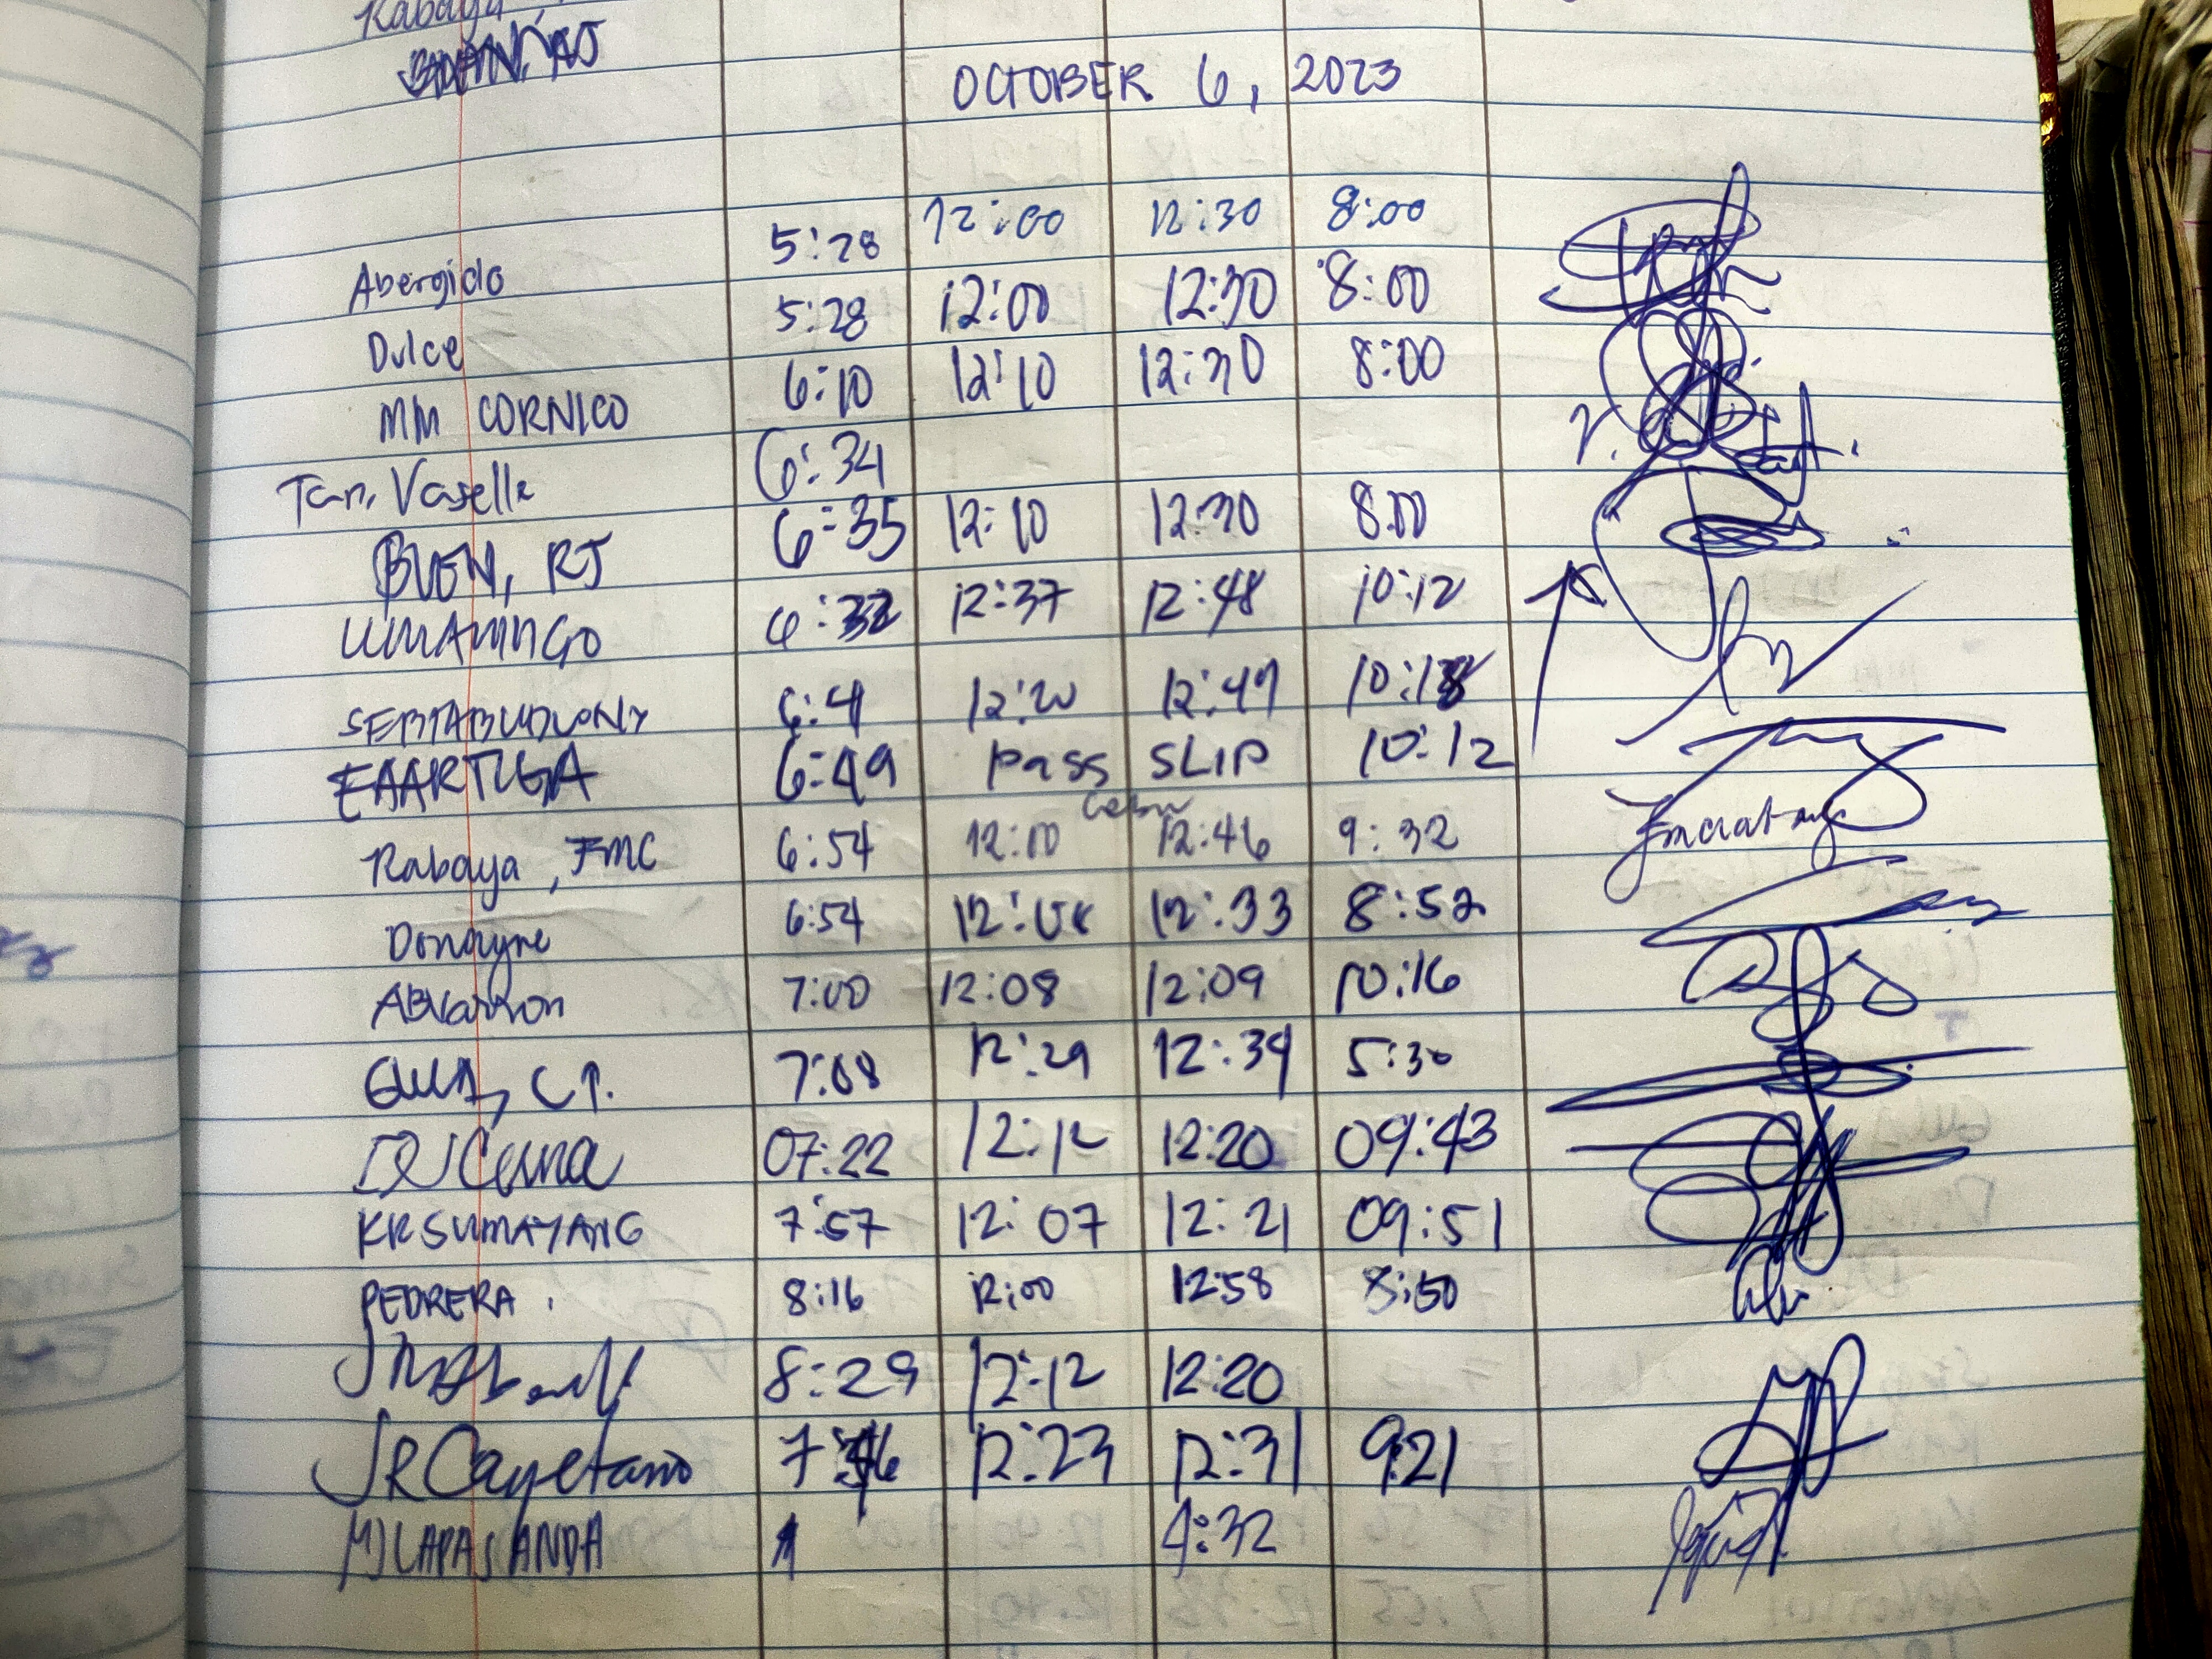 Rabaya,
OCTOBER 6, 2023
Abergido 5:28 12:00 12:30 8:00
Dulce 5:28 12:00 12:30 8:00
MM CORNICO 6:10 12:10 12:30 8:00
Tan, Vaselle 6:34
BUEN, RJ 6:35 12:10 12:30 8:00
LUMAMINGO 12:37 12:48 10:12
6:41 12:20 12:47
EAARTUGA 6:49 pass SLIP 10:12
Cebu
Rabaya, FMC 6:54 12:00 12:46 9:32
Donayre 6:54 12:33 8:52
7:00 12:08 12:09 10:16
7:08 12:29 12:34 5:30
07:22 12:12 12:20 09:43
KRSUMAYANG 7:57 12:07 12:21 09:51
PEDRERA. 8:16 12:00 12:58 8:50
8:29 12:12 12:20
JRCayetano 12:23 12:31 9:21
MJLAPASANDA 4:32